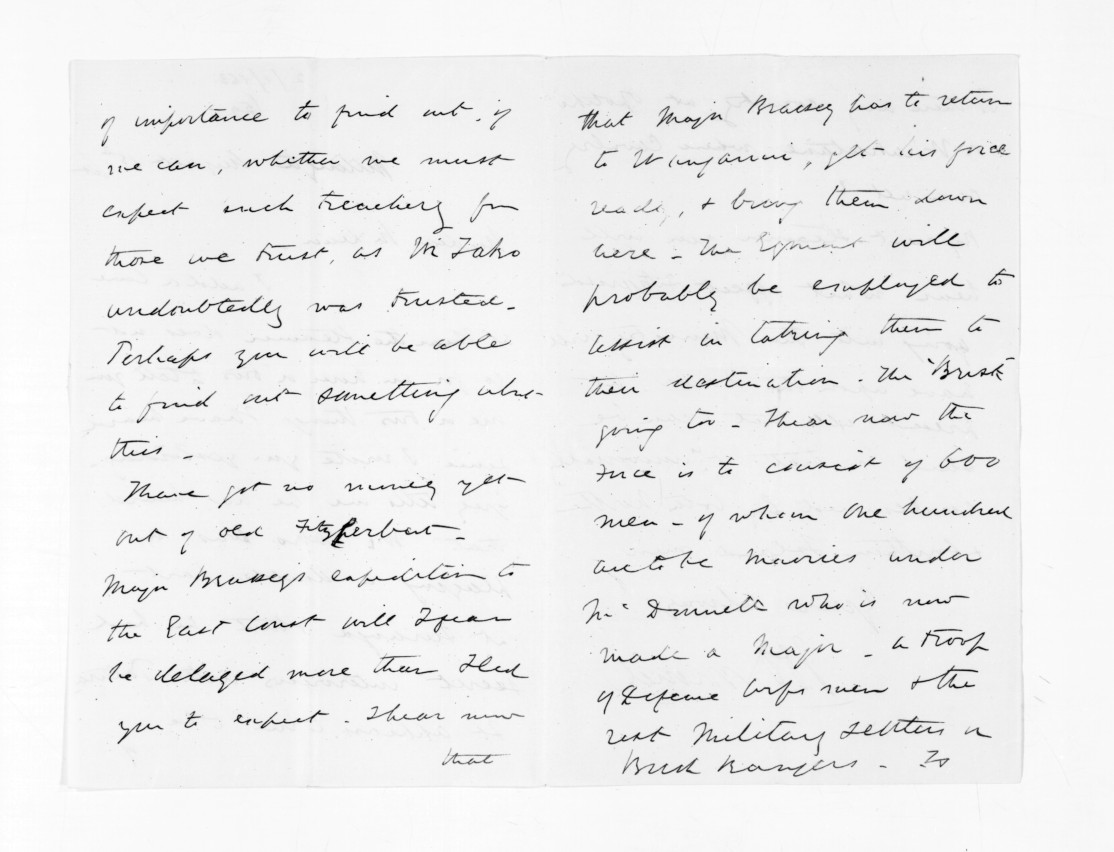 of importance to find out, if
we can, whether we must
expect such treachery from
those we trust, as Wi Tako
undoubtedly was trusted.
Perhaps you will be able
to find out something about
this -
I have got no money yet
out of old Fitzherbert -
Major Brassey's expedition to
the East Coast will I fear
be delayed more than I led
you to expect - I hear now
that
that Major Brassey has to return
to Wanganui, get his force
ready, & bring them down
here - The Egmont will
probably be employed to
assist in taking them to
their destination. The "Brisk"
going too - I hear now the
Force is to consist of 600
men - of whom one hundred
are to be Maories under
McDonnell who is now
made a Major - a troop
of Defence Corps men & the
rest Military Settlers or
Bush Rangers - To